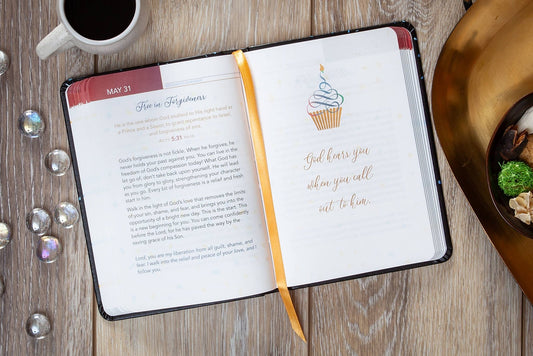 MAY 31
Free in Forgiveness
He is the one whom God exalted to His right hand as
a Prince and a Savior, to grant repentance to Israel,
and forgiveness of sins.
ACTS 5:31 NASB
God's forgiveness is not fickle. When he forgives, he
never holds your past against you. You can live in the
freedom of God's compassion today! What God has
let go of, don't take back upon yourself. He will lead
you from glory to glory, strengthening your character
as you go. Every bit of forgiveness is a relief and fresh
start.
Walk in the light of God's love that removes the limits
of your sin, shame, and fear, and brings you into the
opportunity of a brand new day. This is the start. This
is a new beginning for you. You can come confidently
before the Lord, for he has paved the way by the
saving grace of his Son.
Lord, you are my liberation from all guilt, shame, and
fear. I walk into the relief and peace of your love, and I
follow you.
God hears you
when you call
out to him.